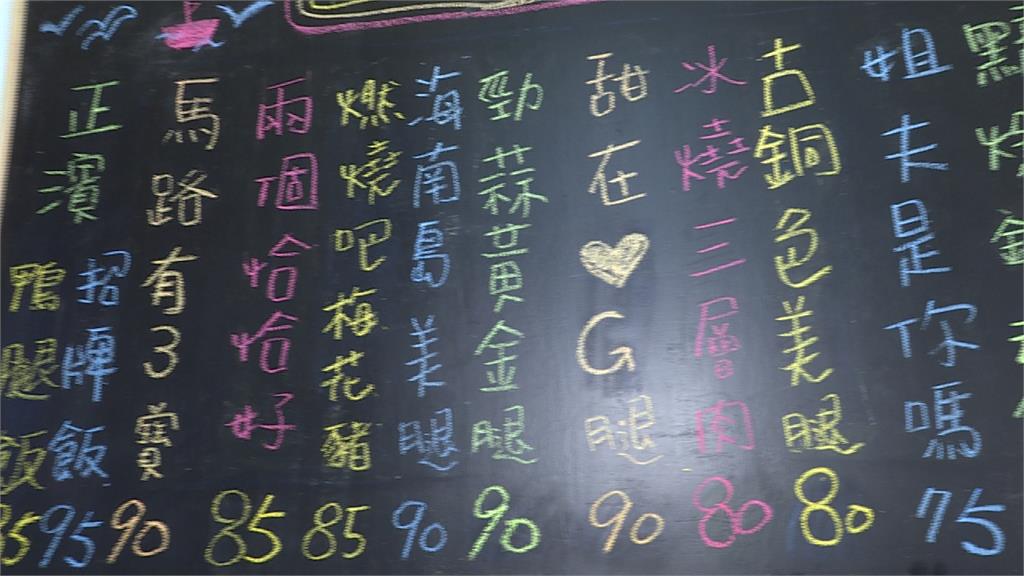 姐夫是你嗎 75
古銅色美腿 80
冰燒三層肉 80
甜在♥G腿 90
勁蒜黃金腿 90
海南島美腿 90
燃燒吧梅花豬 85
兩個恰恰好 85
馬路有3寶 90
正濱
招牌飯 95
鴨腿飯 85